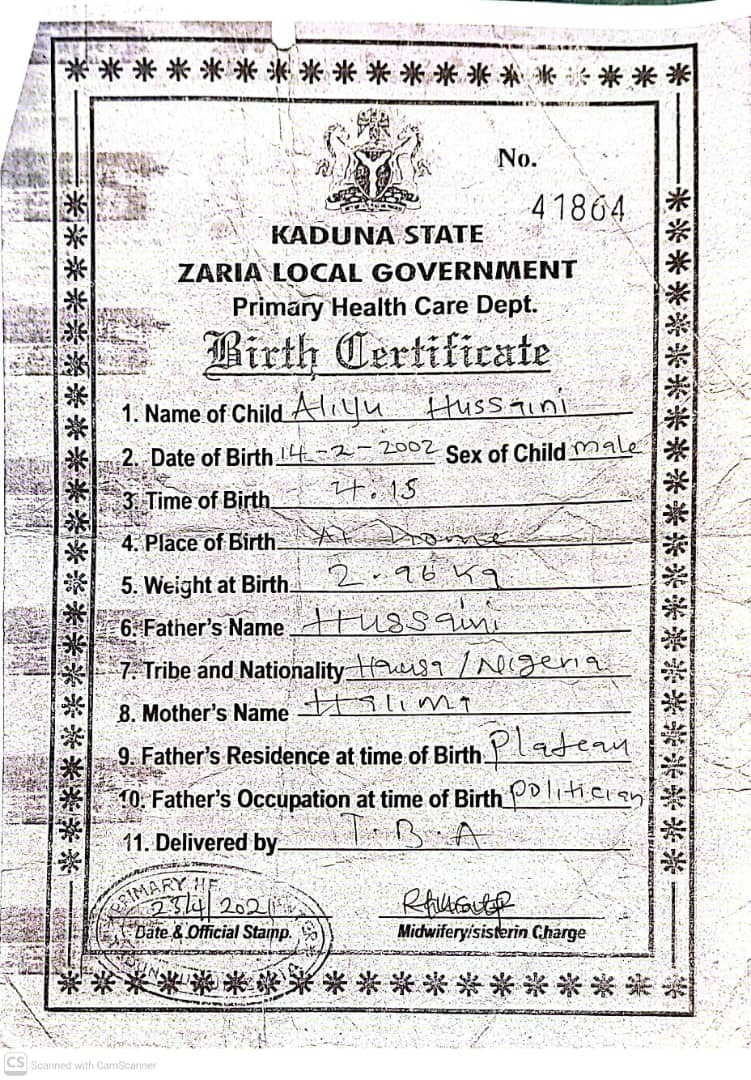 No.
41864
KADUNA STATE
ZARIA LOCAL GOVERNMENT
Primary Health Care Dept.
Birth Certificate
1. Name of Child Aliyu Hussaini
2. Date of Birth 14-2-2002 Sex of Child male
3. Time of Birth 4.15
4. Place of Birth At home
5. Weight at Birth 2.96 kg
6. Father's Name Hussaini
7. Tribe and Nationality Hausa / Nigeria
8. Mother's Name Halima
9. Father's Residence at time of Birth Plateau
10. Father's Occupation at time of Birth politician
11. Delivered by T.B.A
PRIMARY
23/4/2021
Date & Official Stamp.
Midwifery/sisterin Charge
CS Scanned with CamScanner